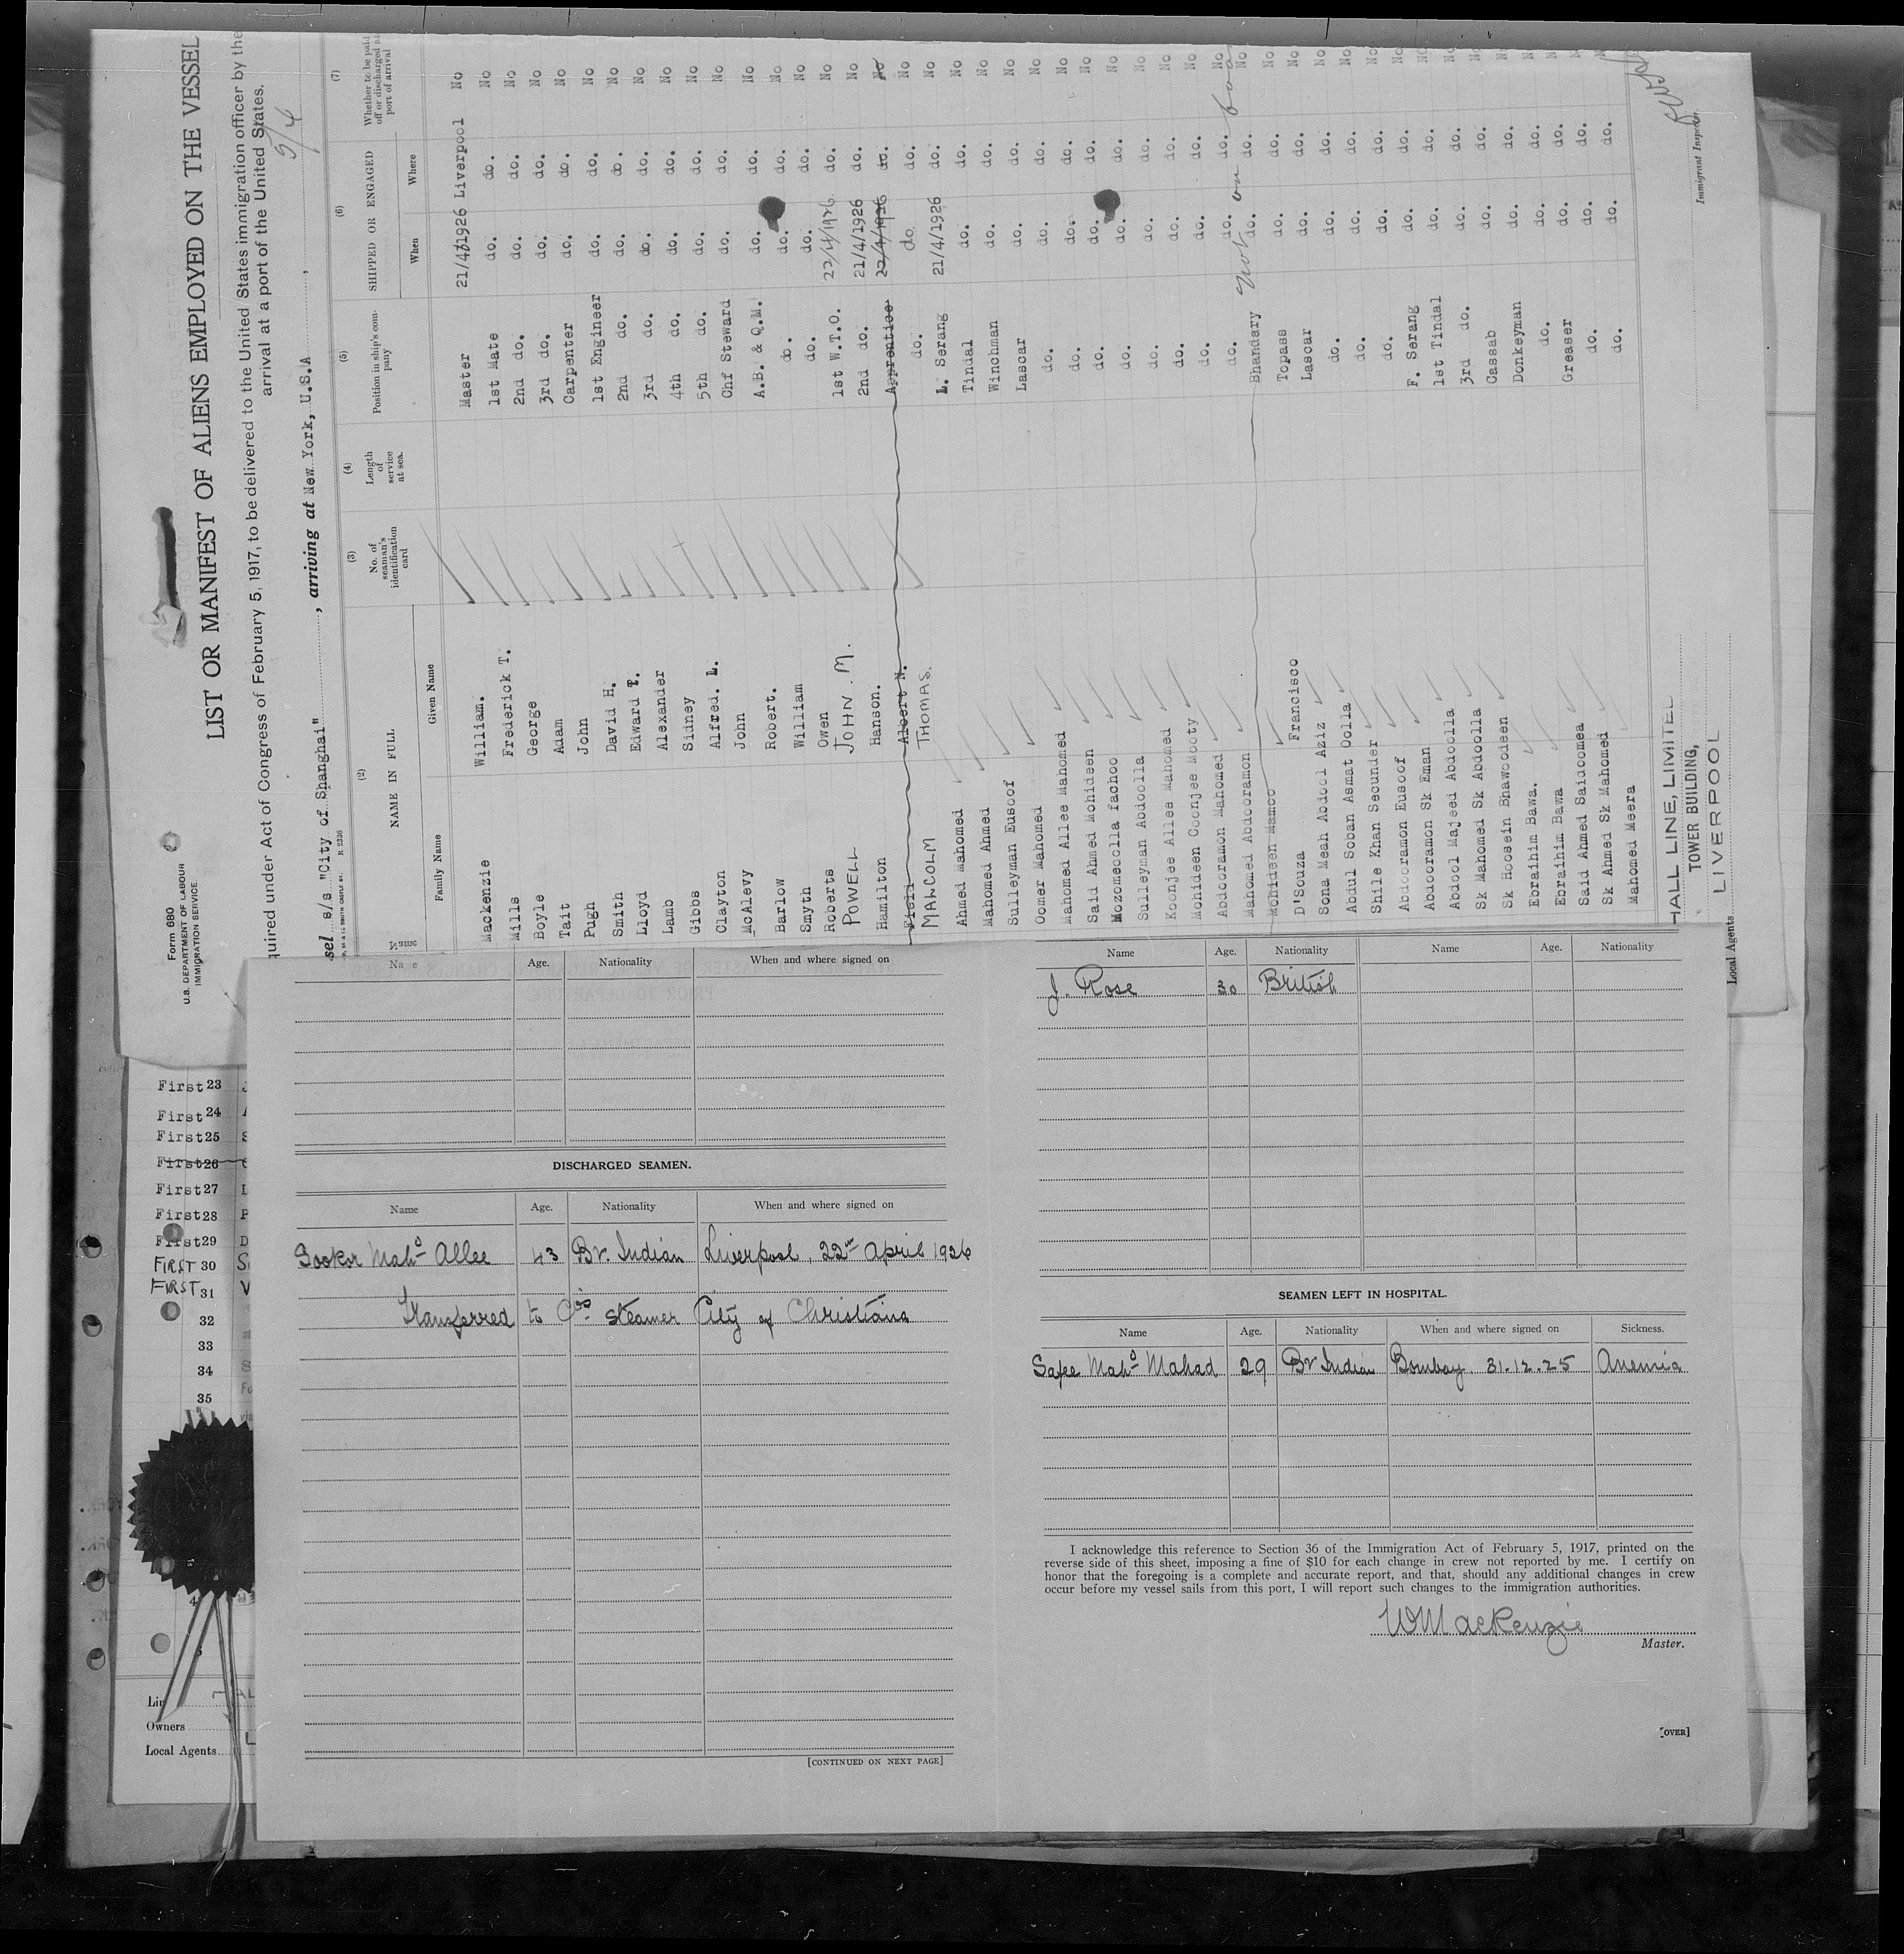 Form 680
U.S. DEPARTMENT OF LABOUR
IMMIGRATION SERVICE
LIST OR MANIFEST OF ALIENS EMPLOYED ON THE VESSEL
quired under Act of Congress of February 5, 1917, to be delivered to the United States immigration officer by the
arrival at a port of the United States.
5/4
sel s/s "City of Shanghai", arriving at New York, U.S.A
R 2336
(2) (3) (4) (5) (6) (7)
NAME IN FULL No. of seaman's identification card Length of service at sea. Position in ship's company SHIPPED OR ENGAGED Whether to be paid off or discharged at port of arrival
Family Name Given Name When Where
Mackenzie William. Master 21/4/1926 Liverpool No
Mills Frederick T. 1st Mate do. do. No
Boyle George 2nd do. do. do. No
Tait Adam 3rd do. do. do. No
Pugh John Carpenter do. do. No
Smith David H. 1st Engineer do. do. No
Lloyd Edward T. 2nd do. do. do. No
Lamb Alexander 3rd do. do. do. No
Gibbs Sidney 4th do. do. do. No
Clayton Alfred. L. 5th do. do. do. No
McAlevy John Chf Steward do. do. No
Barlow Robert. A.B. & Q.M. do. do. No
Smyth William do. do. do. No
Roberts Owen do. do. do. No
POWELL JOHN. M. 1st W.T.O. 22/4/1926 do. No
Hamilton Hanson. 2nd do. 21/4/1926 do. No
Field Albert N. Apprentice 22/4/1926 do. No
MALCOLM THOMAS. do. do do. No
Ahmed Mahomed L. Serang 21/4/1926 do. No
Mahomed Ahmed Tindal do. do. No
Sulleyman Eusoof Winchman do. do. No
Oomer Mahomed Lascar do. do. No
Mahomed Allee Mahomed do. do. do. No
Said Ahmed Mohideen do. do. do. No
Mozomeoolla fachoo do. do. do. No
Sulleyman Abdoolla do. do. do. No
Koonjee Allee Mahomed do. do. do. No
Mohideen Coonjee Mooty do. do. do. No
Abdooramon Mahomed do. do. do. No
Mahomed Abdooramon do. do. do. No
Mohideen Mamoo Bhandary not on boa do. do. No
D'Souza Francisco Topass do. do. No
Sona Meah Abdool Aziz Lascar do. do. No
Abdul Soban Asmat Oolla do. do. do. No
Shile Khan Secunder do. do. do. No
Abdooramon Eusoof do. do. do. No
Abdooramon Sk Eman F. Serang do. do. No
Abdool Majeed Abdoolla 1st Tindal do. do. No
Sk Mahomed Sk Abdoolla 3rd do. do. do. No
Sk Hoosein Bhawoodeen Cassab do. do. No
Ebraihim Bawa. Donkeyman do. do. N
Ebraihim Bawa do. do. do. N
Said Ahmed Saidoomea Greaser do. do. N
Sk Ahmed Sk Mahomed do. do. do. N
Mahomed Meera do. do. do.
HALL LINE, LIMITED
TOWER BUILDING,
LIVERPOOL
Local Agents
Immigrant Inspector.
First 23
First 24
First 25
First 26
First 27
First 28
First 29
FIRST 30
FIRST 31
32
33
34
35
Owners
Local Agents
Name Age. Nationality When and where signed on
DISCHARGED SEAMEN.
Name Age. Nationality When and where signed on
Sookor Mahd Allee 43 Br. Indian Liverpool, 22nd April 1926
Transferred to Co's steamer City of Christiana
[CONTINUED ON NEXT PAGE]
Name Age. Nationality Name Age. Nationality
J. Rose 30 British
SEAMEN LEFT IN HOSPITAL.
Name Age. Nationality When and where signed on Sickness.
Safee Mahd Mahad 29 Br Indian Bombay. 31.12.25 Anemia
I acknowledge this reference to Section 36 of the Immigration Act of February 5, 1917, printed on the
reverse side of this sheet, imposing a fine of $10 for each change in crew not reported by me. I certify on
honor that the foregoing is a complete and accurate report, and that, should any additional changes in crew
occur before my vessel sails from this port, I will report such changes to the immigration authorities.
WMackenzie
Master.
[OVER]